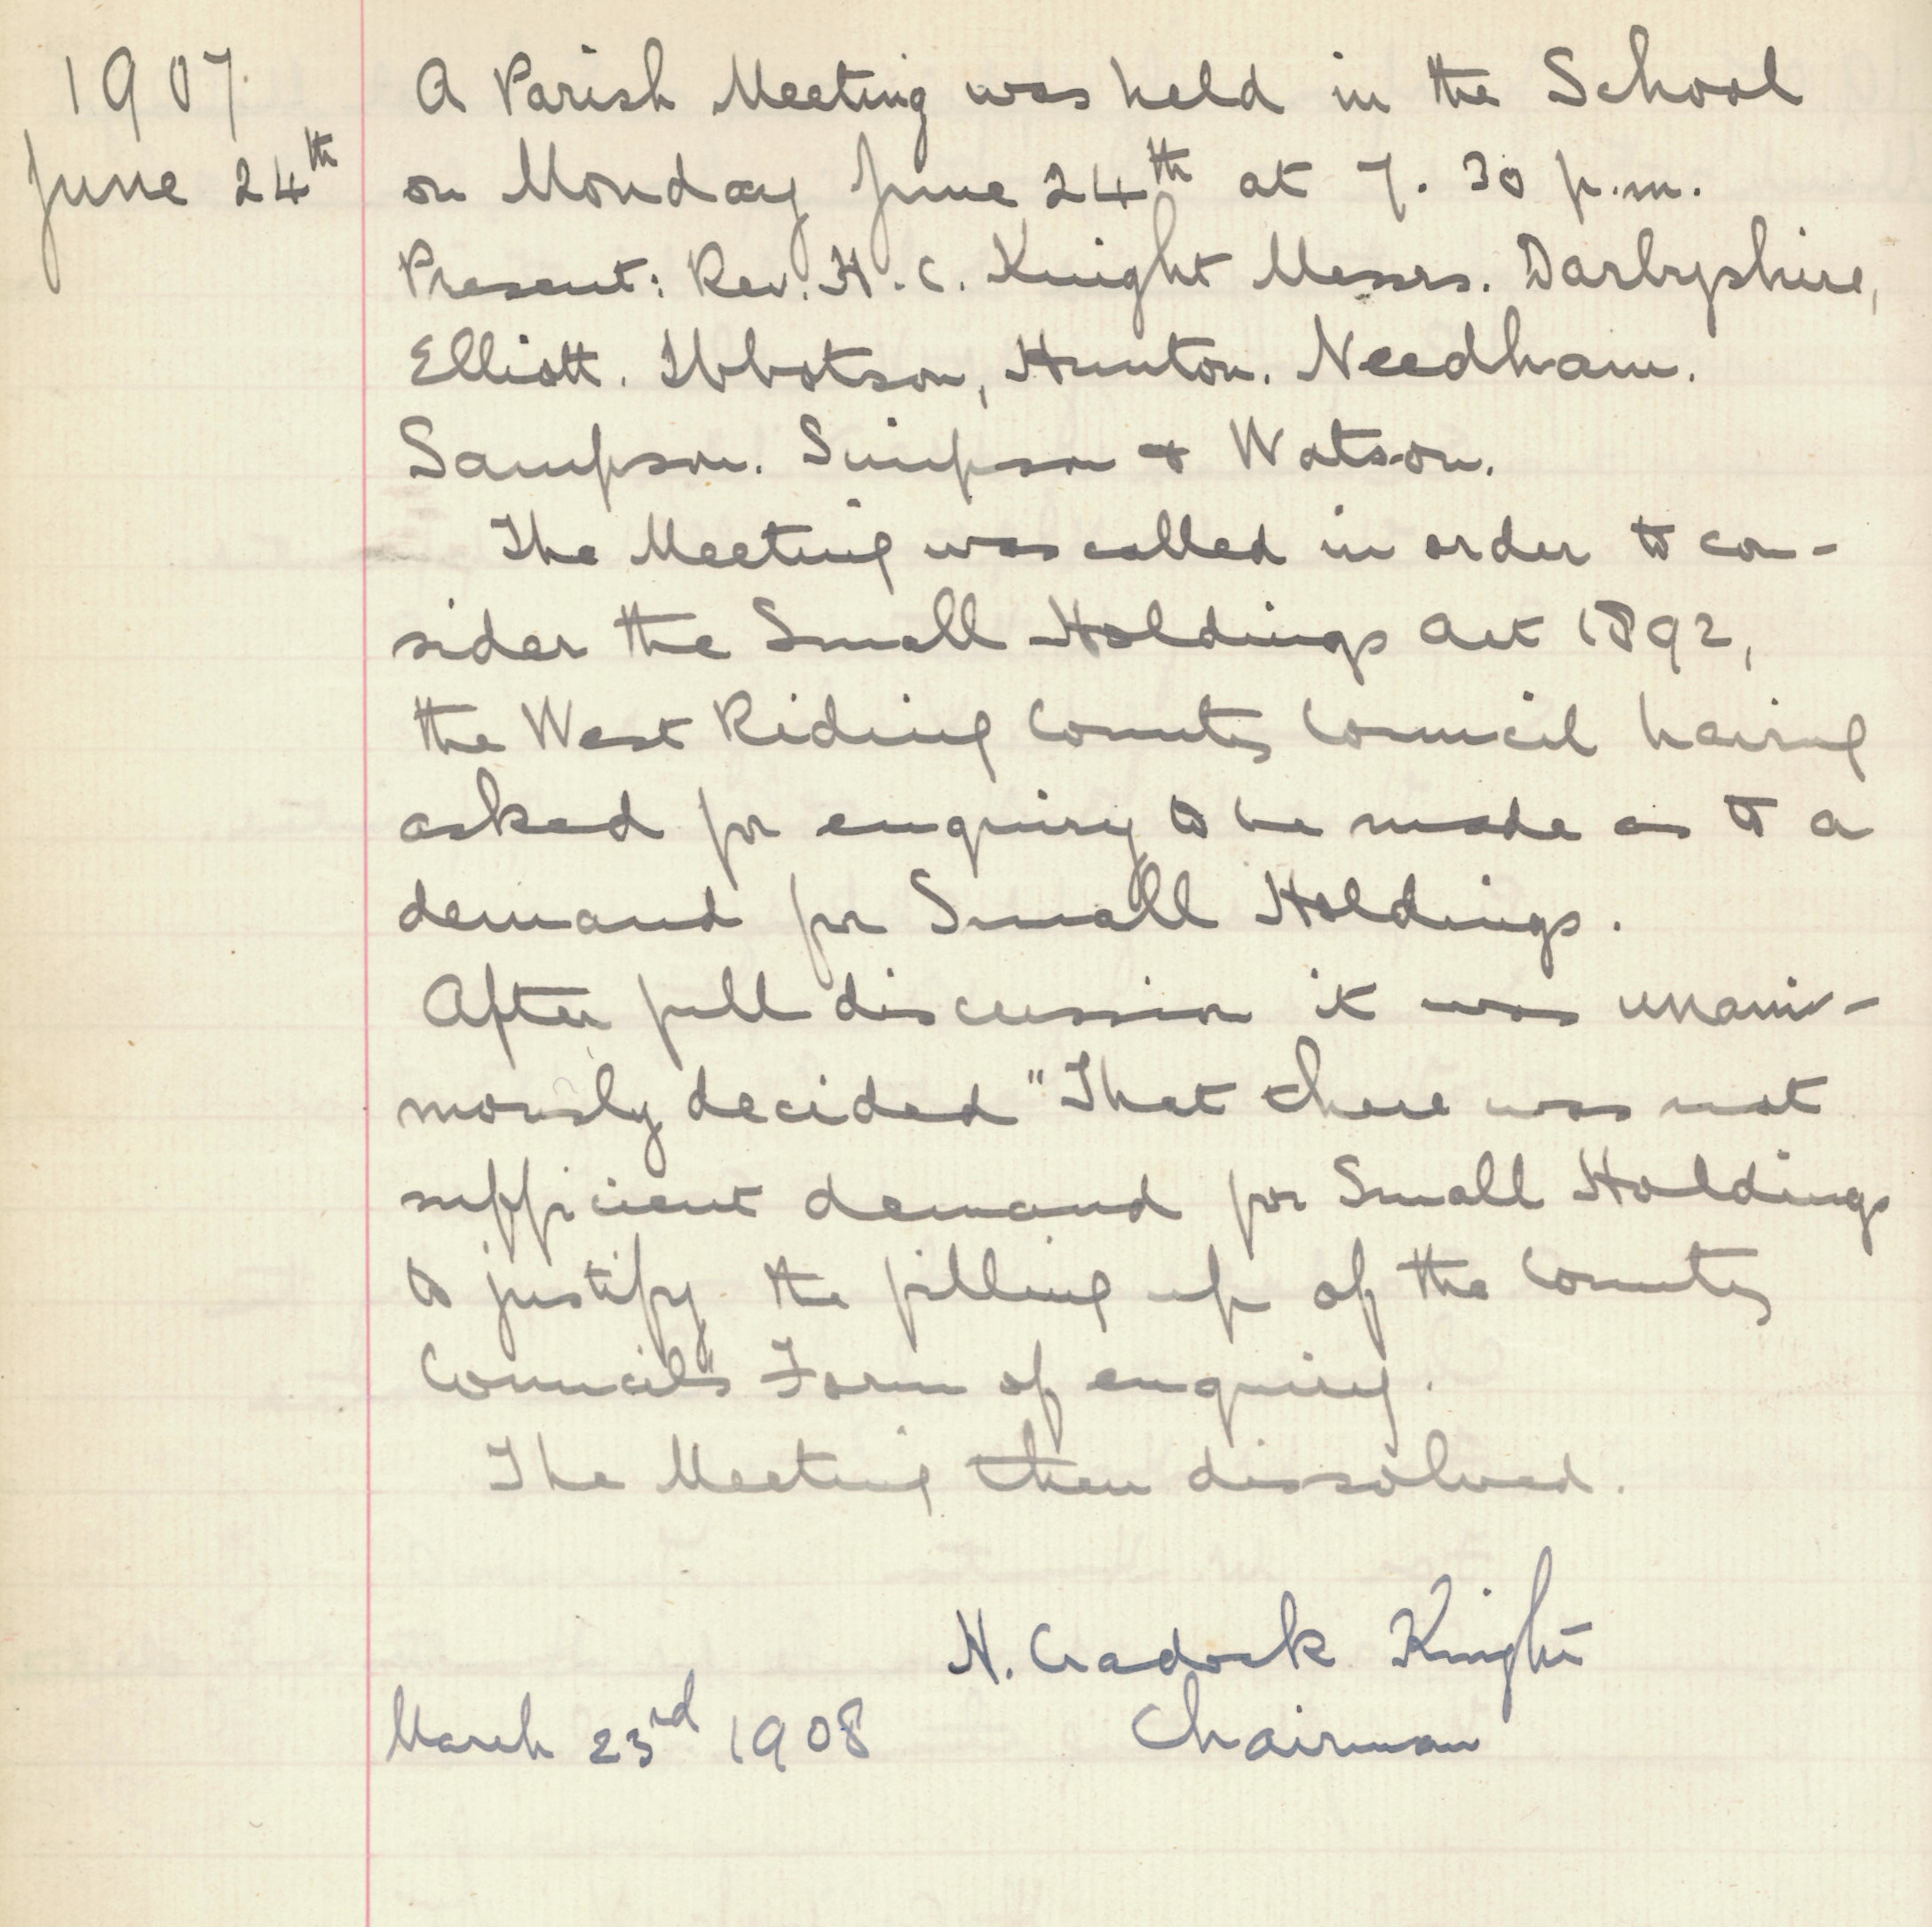 1907.
June 24th
A Parish Meeting was held in the School
on Monday June 24th at 7.30 p.m.
Present: Rev. H. C. Knight Messrs. Darbyshire,
Elliott. Ibbotson, Hunton. Needham.
Sampson. Simpson & Watson.
The Meeting was called in order to con-
sider the Small Holdings Act 1892,
the West Riding County Council having
asked for enquiry to be made as to a
demand for Small Holdings.
After full discussion it was unani-
mously decided "That there was not
sufficient demand for Small Holdings
to justify the filling up of the County
Council's Form of enquiry.
The Meeting then dissolved.
H. Cradock Knight
March 23rd 1908 Chairman